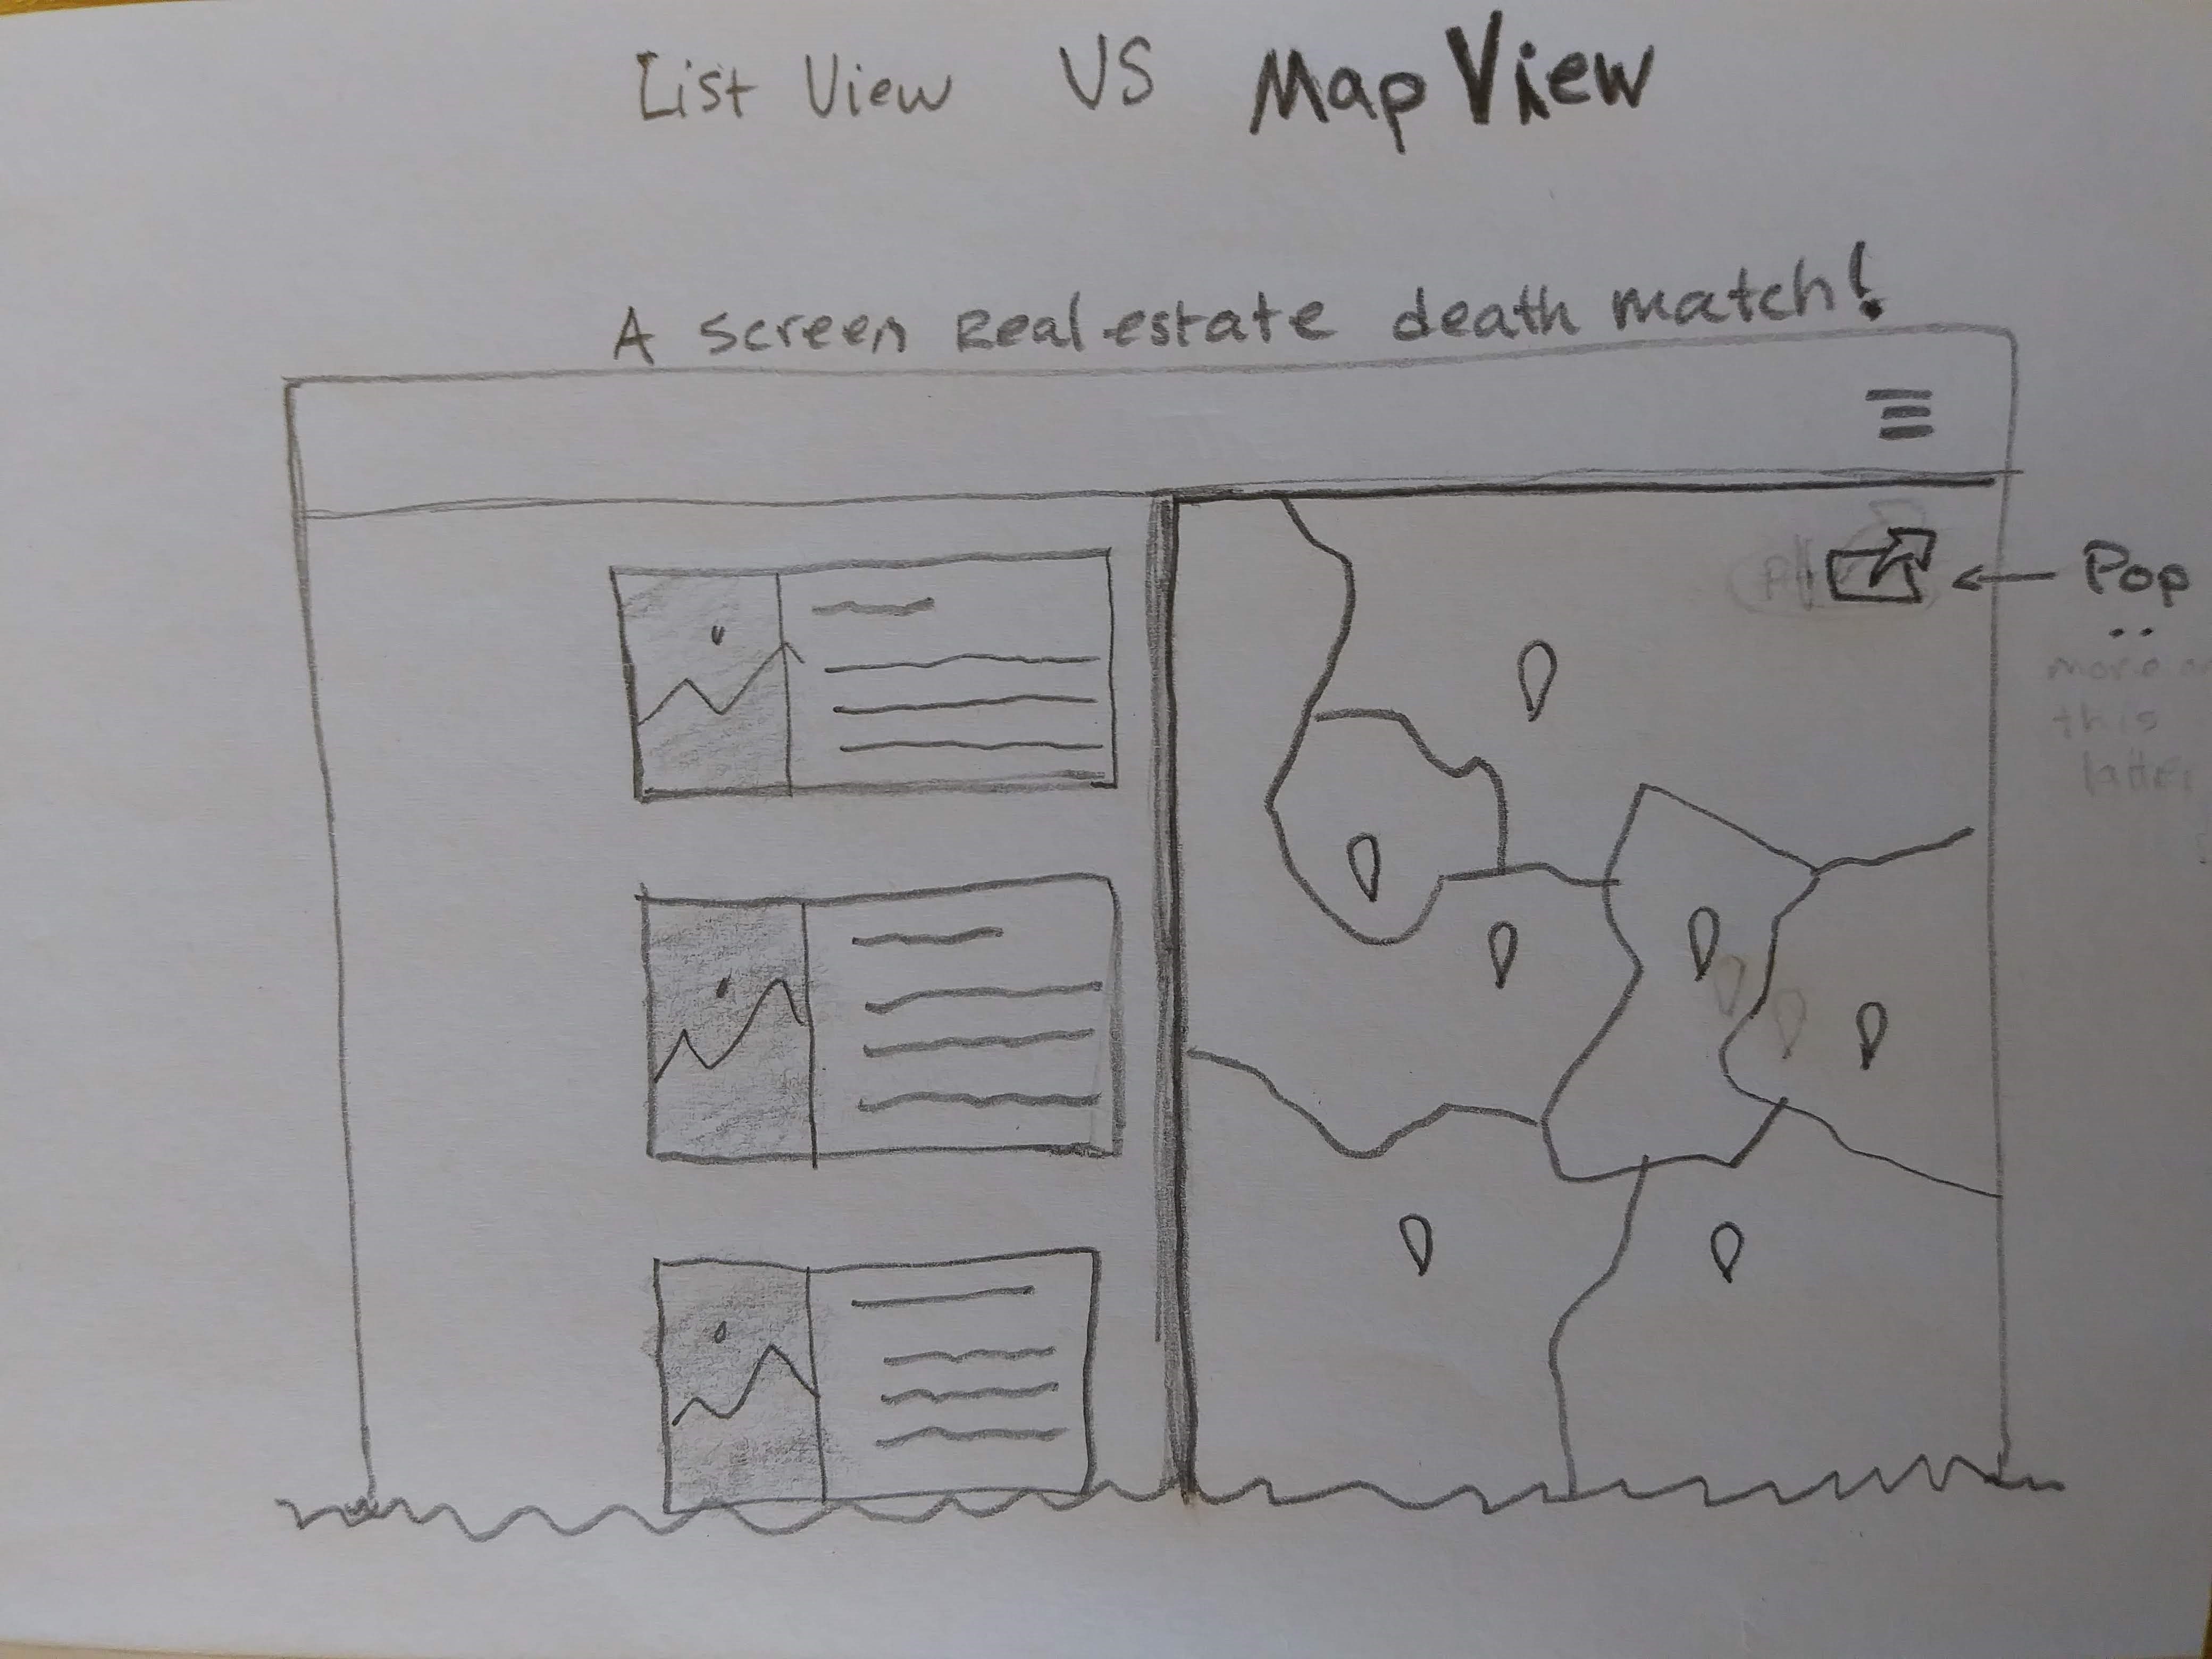 List View VS Map View
A screen Real estate death match!
Pop
more on
this
latter